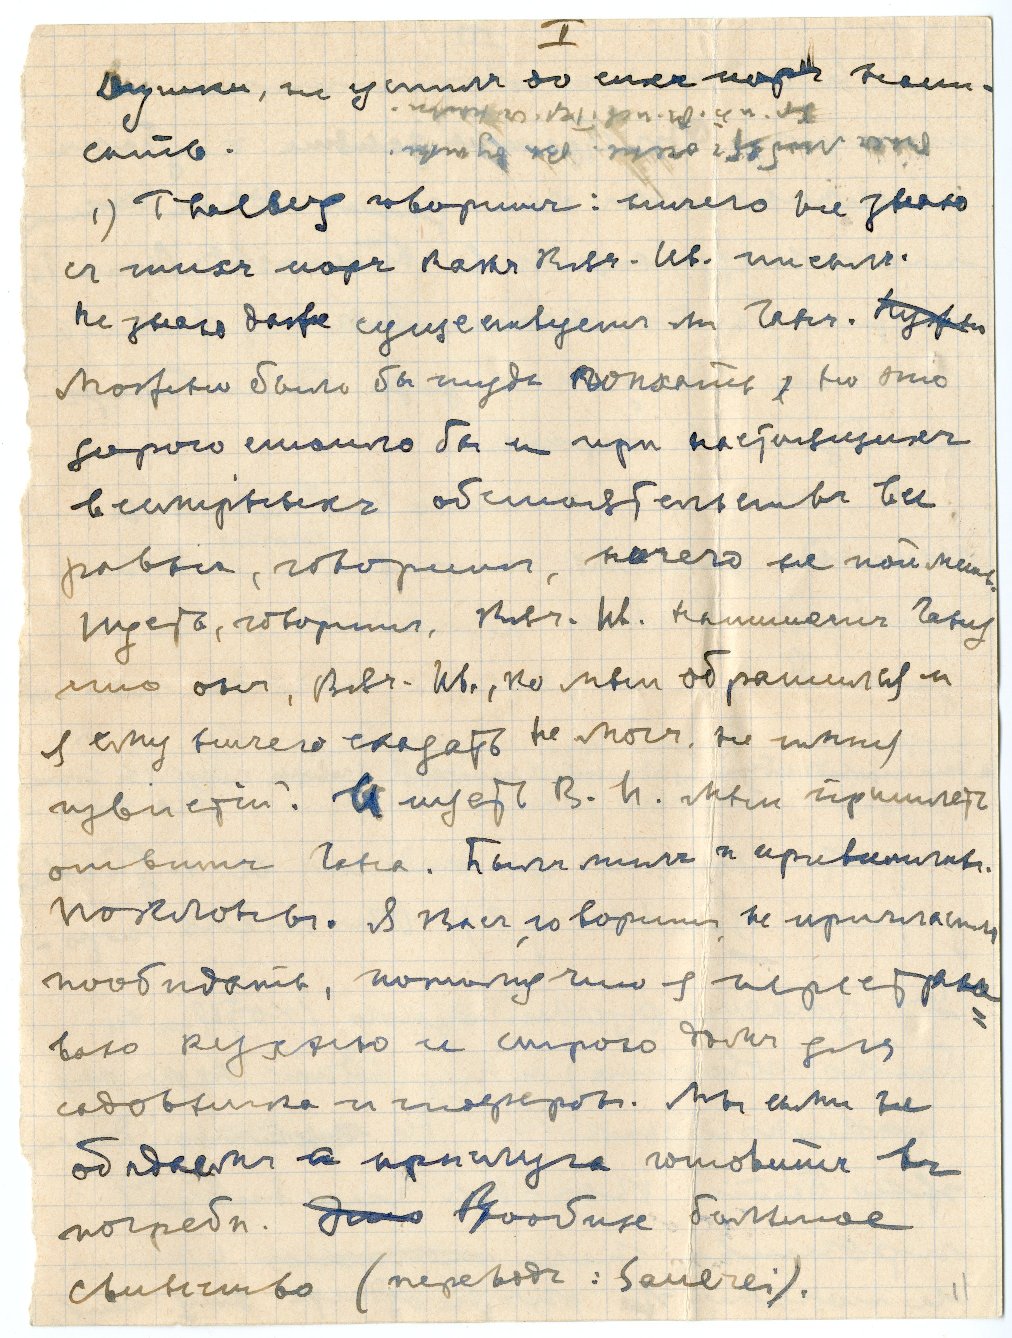 I
Душки, не успѣлъ до сихъ поръ напи-
сать.
1) Thalberg говоритъ: ничего не знаю
съ тѣхъ поръ какъ Вяч. Ив. писалъ.
Не знаю даже существуетъ ли Ганъ.
Можно было бы туда поѣхать, но это
дорого стоило бы и при настоящихъ
обстоятельствахъ все
равно, говоритъ, ничего не поймешь.
Пусть, говоритъ, Вяч. Ив. напишетъ Гану
что онъ, Вяч. Ив., ко мнѣ обратился и
я ему ничего сказать не могъ, не имѣя
извѣстій. И пусть В. И. мнѣ пришлетъ
отвѣтъ Гана. Былъ милъ и привѣтливъ.
Поклоны. Я Васъ, говоритъ, не пригласилъ
пообѣдать, потому что я перестраи=
ваю кухню и строю домъ для
садовника и шоферовъ. Мы сами не
обѣдаемъ а прислуга готовитъ въ
погребѣ. Это Вообще большое
свинство (переводъ: Sauerei).